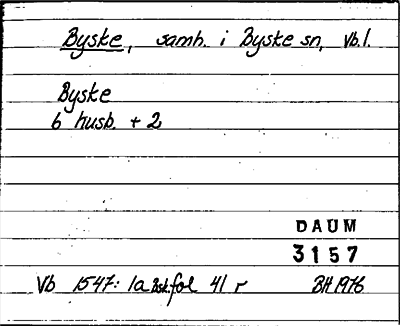 Byske, samh. i Byske sn, Vb.l.
Byske
6 husb. + 2
DAUM
3157
Vb 1547: 1a Bsk. fol 41 r BH 1976